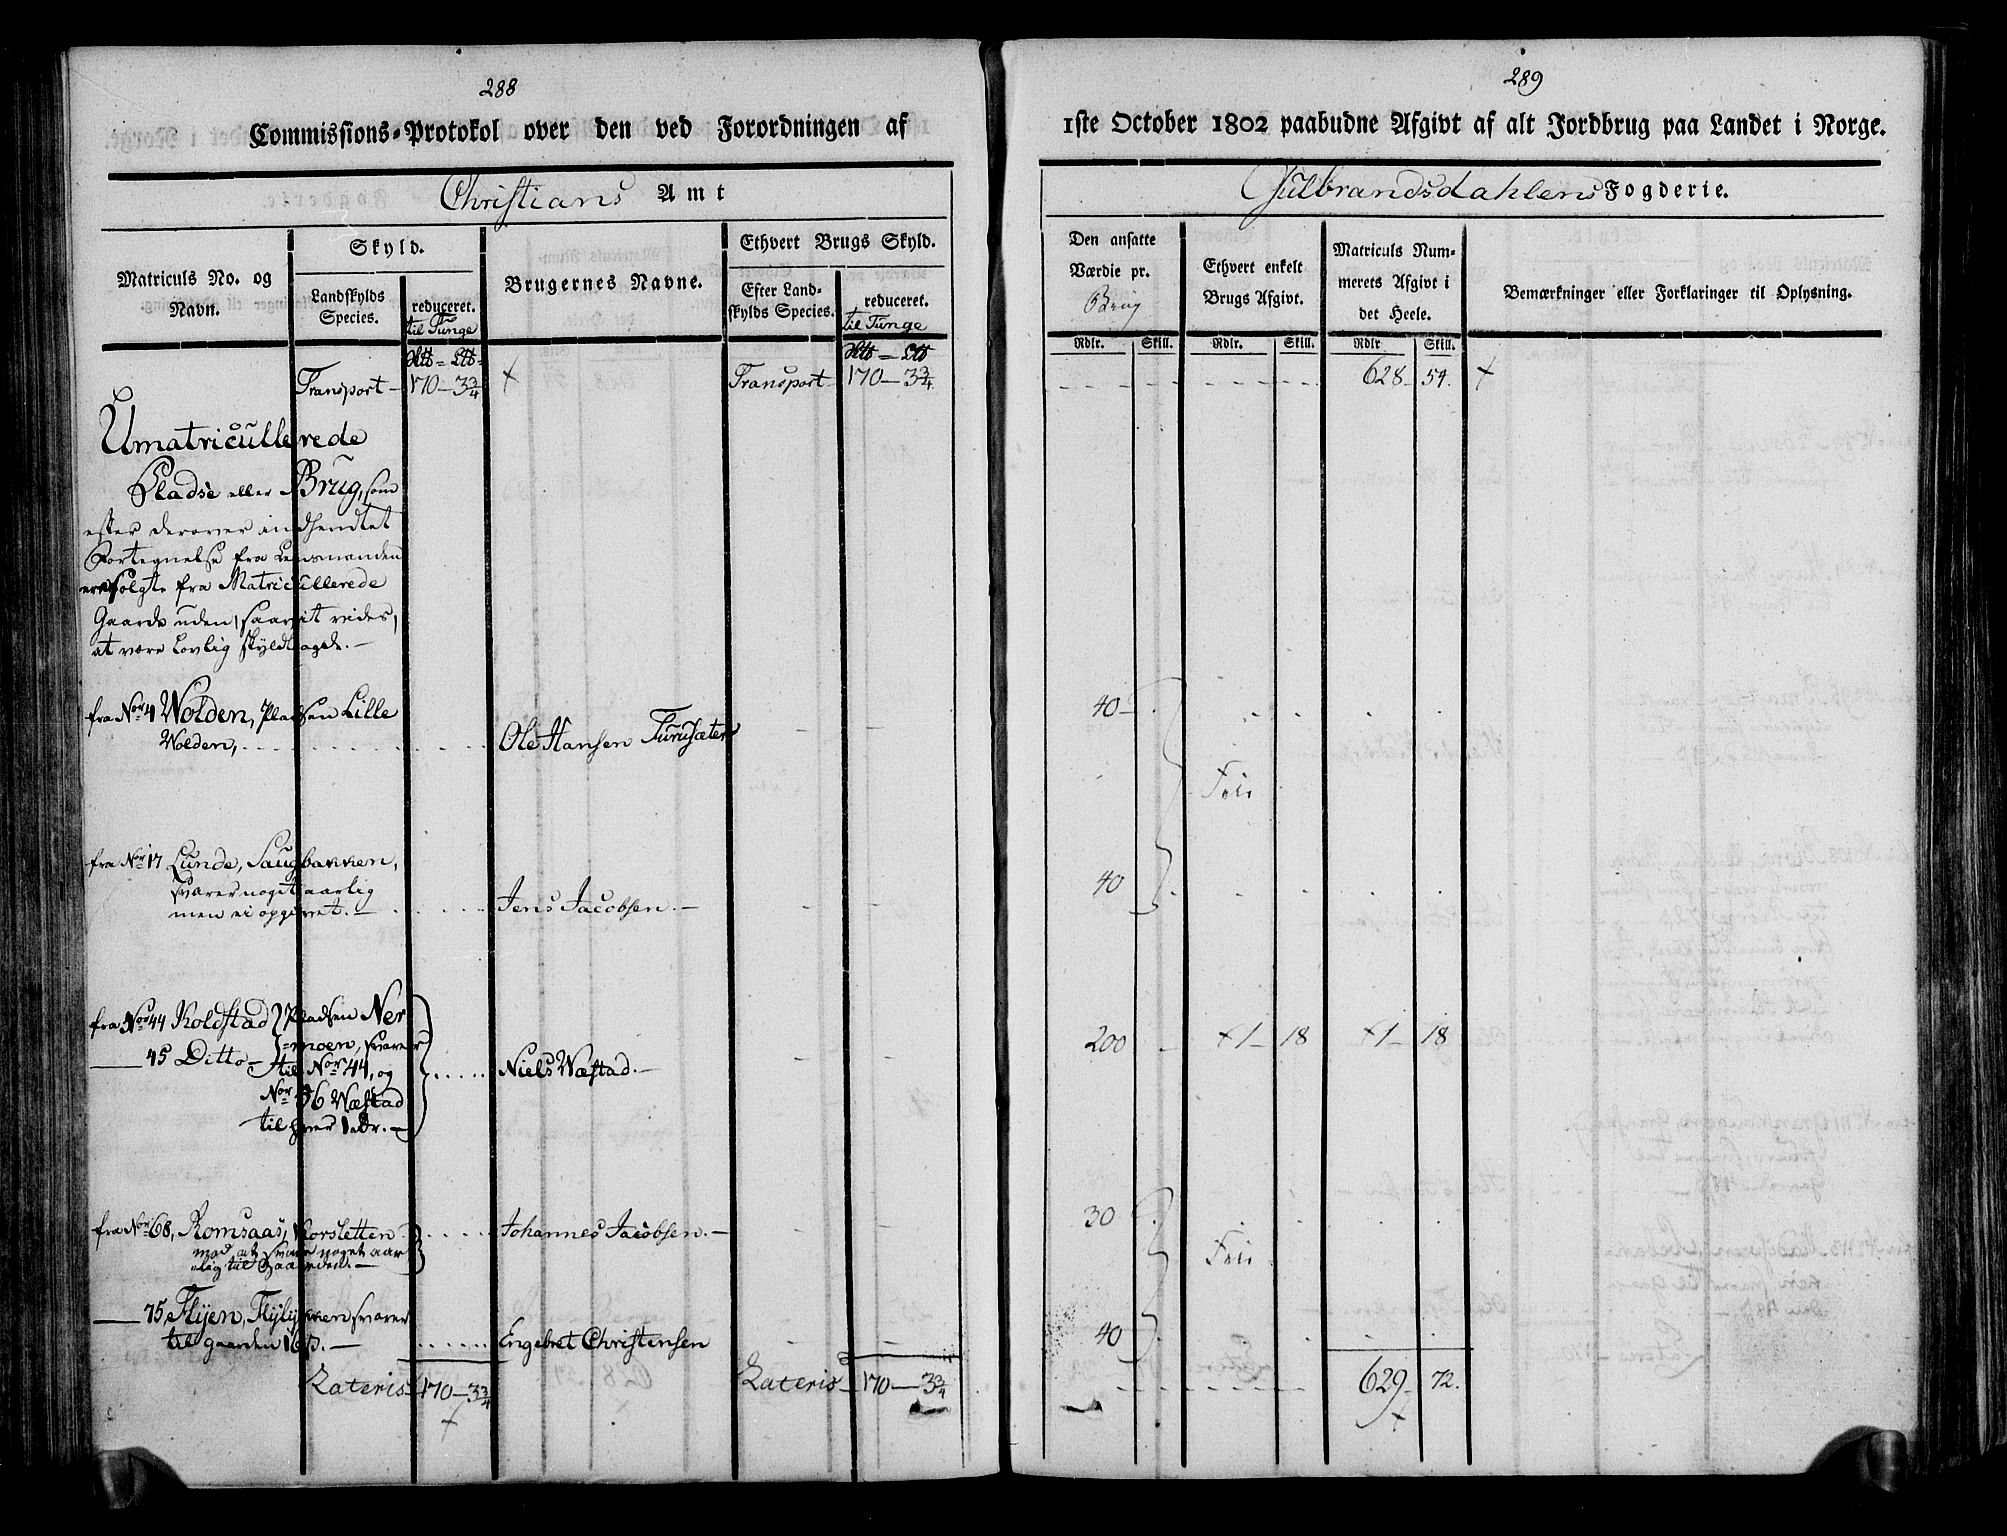 288
Commissions-Protokol over den ved Forordningen af
Christians Amt
Matriculs No. og Navn.
Skyld.
Landskylds Species.
reduceret.
til Tunge
Brugernes Navne.
Ethvert Brugs Skyld.
Efter Landskylds Species.
reduceret.
til Tunge
Transport — 170 — 3 3/4 Transport — 170 — 3 3/4
Umatricullerede
Pladse eller Brug, som
efter derover indhendtet
Fortegnelse fra Lensmanden
ere solgte fra Matricullerede
Gaarde uden, saavit vides,
at være Lovlig skyldlagde. —
fra Nor 4 Wolden, Pladsen Lille
Wolden, Ole Hansen Furusæter
fra Nor 17 Lunde, Saugbakken,
svarer noget aarlig
men ei opgivet. — Jens Jacobsen. —
fra Nor 44 Koldstad Pladsen Ner
— 45 Ditto — =moen, svarer
til Nor 44, og Niels Wæstad. —
Nor 56 Wæstad
til hver 1 Rdr. —
fra Nor 68, Romsaas, Korsletten Johannes Jacobsen. —
mod at svare noget aar
=lig til Gaarden. —
— 75, Flyen, svarer
til gaarden — Engebret Christensen
Lateris — 170 — 3 3/4 Lateris — 170 — 3 3/4
289
1ste October 1802 paabudne Afgivt af alt Jordbrug paa Landet i Norge.
Gulbrandsdahlens Fogderie.
Den ansatte Værdie pr.
Brug
Ethvert enkelt Brugs Afgivt.
Matriculs Nummerets Afgivt i det Heele.
Bemærkninger eller Forklaringer til Oplysning.
Rdlr. Skill. Rdlr. Skill. Rdlr Skill.
628 — 54.
40 —
Fri
40
200 — 1 — 18 1 — 18
30
Fri
40
629 — 72.